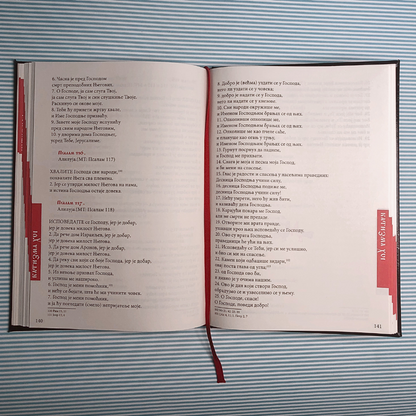 6. Часна је пред Господом
смрт преподобних Његових.
7. О Господе, ја сам слуга Твој,
ја сам слуга Твој и син слушкиње Твоје.
Раскинуо си окове моје.
8. Теби ћу принети жртву хвале,
и Име Господње призваћу
9. Завете моје Господу испунићу
пред свим народом Његовим,
10. у дворима дома Господњег,
усред Тебе, Јерусалиме.
Псалам 116.
Алилуја (МТ: Псалам 117)
ХВАЛИТЕ Господа сви народи,
похвалите Њега сви племени,
2. Јер се утврди милост Његова на нама,
и истина Господња остаје довека.
Псалам 117.
Алилуја (МТ: Псалам 118)
ИСПОВЕДАЈТЕ се Господу, јер је добар,
јер је довека милост Његова.
2. Да рече дом Израиљев, јер је добар,
јер је довека милост Његова
3. Да рече дом Аронов, јер је добар,
јер је довека милост Његова
4. Да реку сви који се боје Господа, јер је добар,
јер је довека милост Његова.
5. Из невоље призвах Господа,
и услиши ме на пространо.
6. Господ је мени помоћник,
и нећу се бојати, шта ће ми учинити човек.
7. Господ је мени помоћник,
и ја ћу погледати (смело) непријатеље моје.
140
8. Добро је уздати се у Господа,
него ли уздати се у човека;
9. добро је надати се у Господа,
него ли надати се у кнезове;
10. Сви народи окружише ме,
и Именом Господњим браних се од њих.
11. Опколивши опколише ме,
и Именом Господњим браних се од њих.
12. Опколише ме као пчеле саће,
и плануше као огањ у трњу,
и Именом Господњим браних се од њих.
13. Гурнут посрнух да паднем,
и Господ ме прихвати.
14. Снага је моја и песма моја Господ,
и би мени на спасење.
15. Глас је радости и спасења у настамбама праведника:
Десница Господња учини силу!
16. десница Господња подиже ме,
десница Господња учини силу!
17. Нећу умрети, него ћу жив бити,
и казиваћу дела Господња.
18. Карајући покара ме Господ,
али ме смрти не предаде
19. Отворите ми врата правде,
ушавши кроз њих исповедаћу се Господу.
20. Ово су врата Господња,
праведници ће ући на њих.
21. Исповедаћу се Теби, јер си ме услишио,
и био си ми на спасење.
22. Камен који одбацише зидари,
овај поста глава од угла,
23. од Господа ово би,
и дивно је у очима нашим.
24. Ово је дан који створи Господ,
обрадујмо се и узвеселимо се у њему.
25. О Господе, спаси!
О Господе, поведи добро!
141